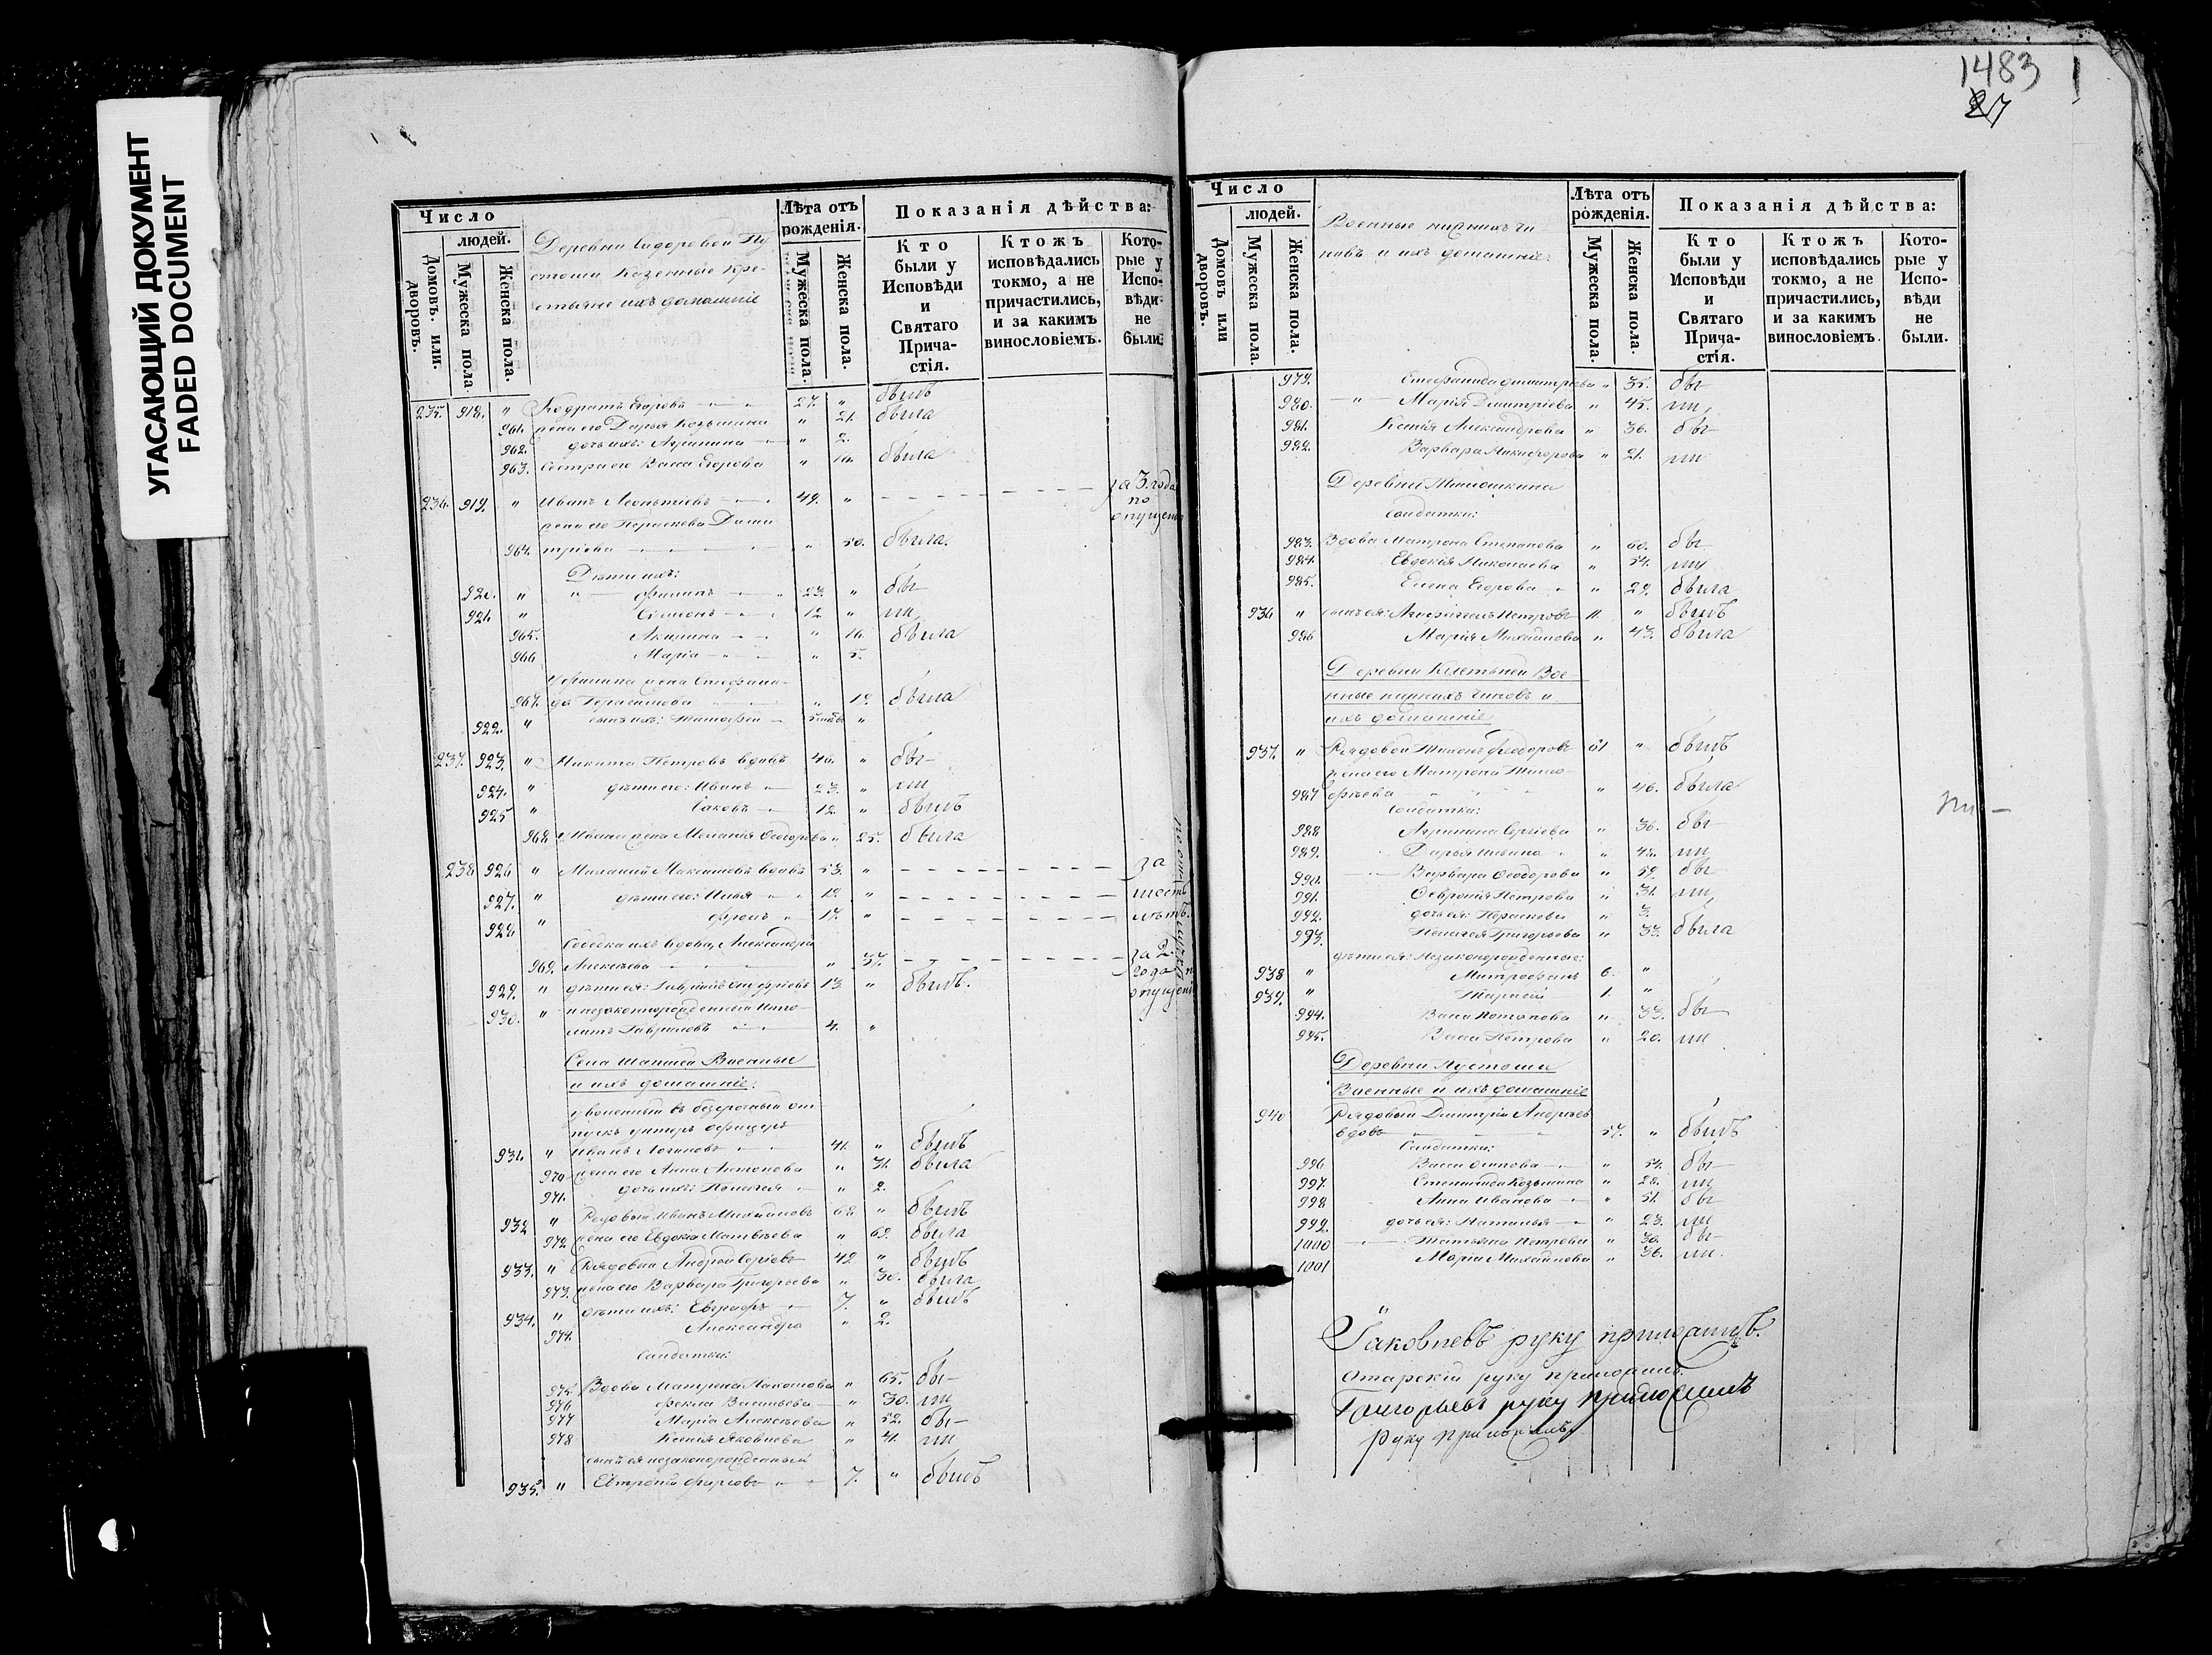 УГАСАЮЩИЙ ДОКУМЕНТ
FADED DOCUMENT
Число
людей.
Домовъ. или дворовъ.
Мужеска пола
Женска пола.
Деревни Сидоровой Пу
стоши казенные кре-
стьяне ихъ домашніе
Лѣта отъ рожденія.
Мужеска пола.
Женска пола.
Показанія дѣйства:
Кто были у Исповѣди и Святаго Прича-стія.
Ктожъ исповѣдались токмо, а не причастились, и за какимъ винословіемъ.
Кото-рые у Испо-вѣди не были.
235. 918. " Кодратъ Егоровъ 27. " былъ
961. жена его Дарья Козьмина " 21. была
962. дочь ихъ: Агрипина " 2.
963. сестра его Васса Егорова " 10. была
236. 919. " Иванъ Леонтіевъ 49. " за 3. года
по
опущенію
жена его Параскева Дими
964. тріева " 50. была.
Дѣти ихъ:
920. " Филипъ 23. " бы-
921. " Сімеонъ 12. " ли,
965. Акилина " 16. была
966 Марія " 5.
Филипа жена Стефани-
967. да Герасимова " 19. была
922. " сынъ ихъ: Тимофей "
237. 923. " Никита Петровъ вдовъ 46. " бы-
924. " дѣти его: Иванъ 23. " ли
925 " Іаковъ 12. " былъ
968. Ивана жена Меланія Ѳеодорова " 25. была
238 926. " Максимовъ вдовъ 53. " за
927. " дѣти его: Илья 19. " шесть
928. " Фролъ 17. " лѣтъ.
по опущенію
Сосѣдка ихъ вдова, Александра
969. Алексѣева " 37. за 2.
года по
опущенію
929. " дѣти ея: Гавріилъ 13. " былъ.
930. " и незаконнорожденный Иппо-
литъ Гавриловъ 4. "
Села Шапкей Военные
и ихъ домашніе:
уволенный въ безсрочный от
пускъ унтеръ офицеръ
931. " Иванъ Логиновъ 41. " былъ
970. жена его Анна Антонова " 31. была
971. дочь ихъ: Пелагея " 2.
932 " Рядовый Иванъ Михайловъ 68. " былъ
972 жена его Евдокія Матвѣева " 69. была
933. " Рядовый Андрей Сергіевъ 42 " былъ
973. жена его Варвара Григорьева " 30. была
934. " дѣти ихъ: Евграфъ 7. " былъ
974. Александра " 2.
Солдатки:
975 Вдова Матрена " 65. бы-
976 Фекла Васильева " 30. ли
977 Марія Алексѣева " 52. бы-
978 Ксенія Яковлева " 41. ли
сынъ ея незаконорожденный
935. " 7. " былъ
1483
27
Число
людей.
Домовъ или дворовъ.
Мужеска пола.
Женска пола.
Военные нижнихъ чи
новъ и ихъ домашніе:
Лѣта отъ рожденія.
Мужеска пола.
Женска пола.
Показанія дѣйства:
Кто были у Исповѣди и Святаго Прича-стія.
Ктожъ исповѣдались токмо, а не причастились, и за какимъ винословіемъ.
Кото-рые у Испо-вѣди не были.
979. Стефанида Димитріева " 35. бы-
980. Марія Дмитріева " 45. ли,
981. Ксенія Александрова " 36. бы-
982. Варвара Никифорова " 21. ли
Деревни
Солдатки:
983. Вдова Матрона Степанова " 60. бы-
984. Евдокія Николаева " 54. ли
985. Елена Егорова " 29. была
936 " сынъ ея: Петровъ 11. " былъ
986 Марія Михайлова " 43. была
Деревни Клетьней Вое-
нные нижнихъ чиновъ и
ихъ домашніе
937. " Рядовой Тихонъ Феодоровъ 51 " былъ
жена его Матрона Тимо-
987 фѣева " 46. была
Солдатки:
988 Агрипина Сергіева " 36. бы-
989. Дарья Ильина " 48. ли
990. Варвара Ѳеодорова " 59. бы-
991. Февронія Петрова " 31. ли,
992. дочь ея: Параскева " 3.
993. Пелагея Григорьева " 33. была
дѣти ея: Незаконорожденные:
938 " Митрофанъ 6. "
939. " Тарасій 1. "
994. Васса Потапова " 33. бы-
995. Васса Петрова " 20. ли
Деревни Пустоши
Военные и ихъ домашніе
940 Рядовый Дмитрій Андреевъ
вдовъ 57. " былъ
Солдатки:
996 Васса " 54. бы-
997. Степанида Козьмина " 28. ли
998 Анна Иванова " 51. бы
999. дочь ея: Наталья " 23. ли
1000 Татьяна Петрова " 30. бы-
1001 Марія Михайлова " 36. ли.
Іаковлевъ руку приложилъ.
руку приложилъ.
Григорьевъ руку приложилъ
руку приложилъ